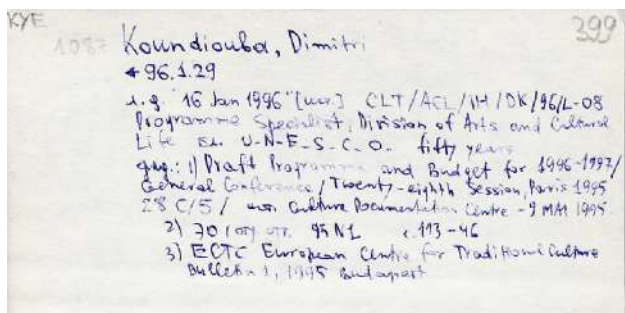 KYE
399
1087 Koundiouba, Dimitri
+ 96.1.29
16 Jan 1996 CLT/ACL/IH/DK/96/L-08
Programme Specialist, Division of Arts and Cultural
Life U-N-E-S-C-O. fifty years
1) Draft Programme and Budget for 1996-1997/
General Conference/Twenty-eighth Session, Paris 1995
28 C/5/ Culture Documentation Centre - 9 MAI 1995
2) 95 N1 c. 113-46
3) ECTC European Centre for Traditional Culture
Bulletin 1, 1995 Budapest